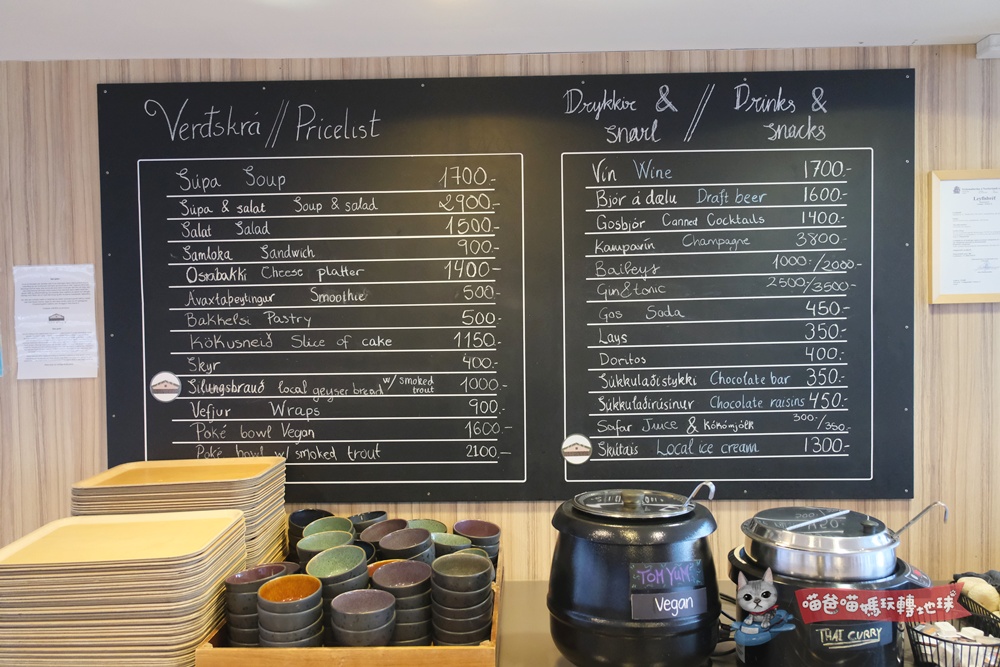 Verðskrá // Pricelist
Súpa Soup 1700.-
Súpa & salat Soup & salad 2900.-
Salat Salad 1500.-
Samloka Sandwich 900.-
Ostabakki Cheese platter 1400.-
Ávaxtaþeytingur Smoothie 500.-
Bakkelsi Pastry 500.-
Kökusneið Slice of cake 1150.-
Skyr 400.-
Silungsbrauð local geyser bread w/ smoked trout 1000.-
Vefjur Wraps 900.-
Poké bowl Vegan 1600.-
Poké bowl w/ smoked trout 2100.-
Drykkir & snarl // Drinks & snacks
Vín Wine 1700.-
Bjór á dælu Draft beer 1600.-
Gosbjór Canned Cocktails 1400.-
Kampavín Champagne 3800.-
Baileys 1000.-/2000.-
Gin&tonic 2500/3500.-
Gos Soda 450.-
Lays 350.-
Doritos 400.-
Súkkulaðistykki Chocolate bar 350.-
Súkkulaðirúsínur Chocolate raisins 450.-
Safar Juice & Kókómjólk 300.-/350.-
Skútaís Local ice cream 1300.-
TOM YUM
Vegan
喵爸喵媽玩轉地球
THAI CURRY